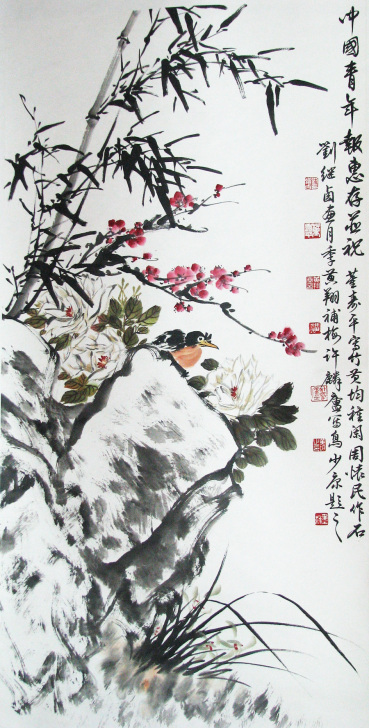 中國青年報惠存並祝 董寿平写竹黄均種蘭周懷民作石
劉继卣画月季黄翔補梅许麟廬写鳥少康題之